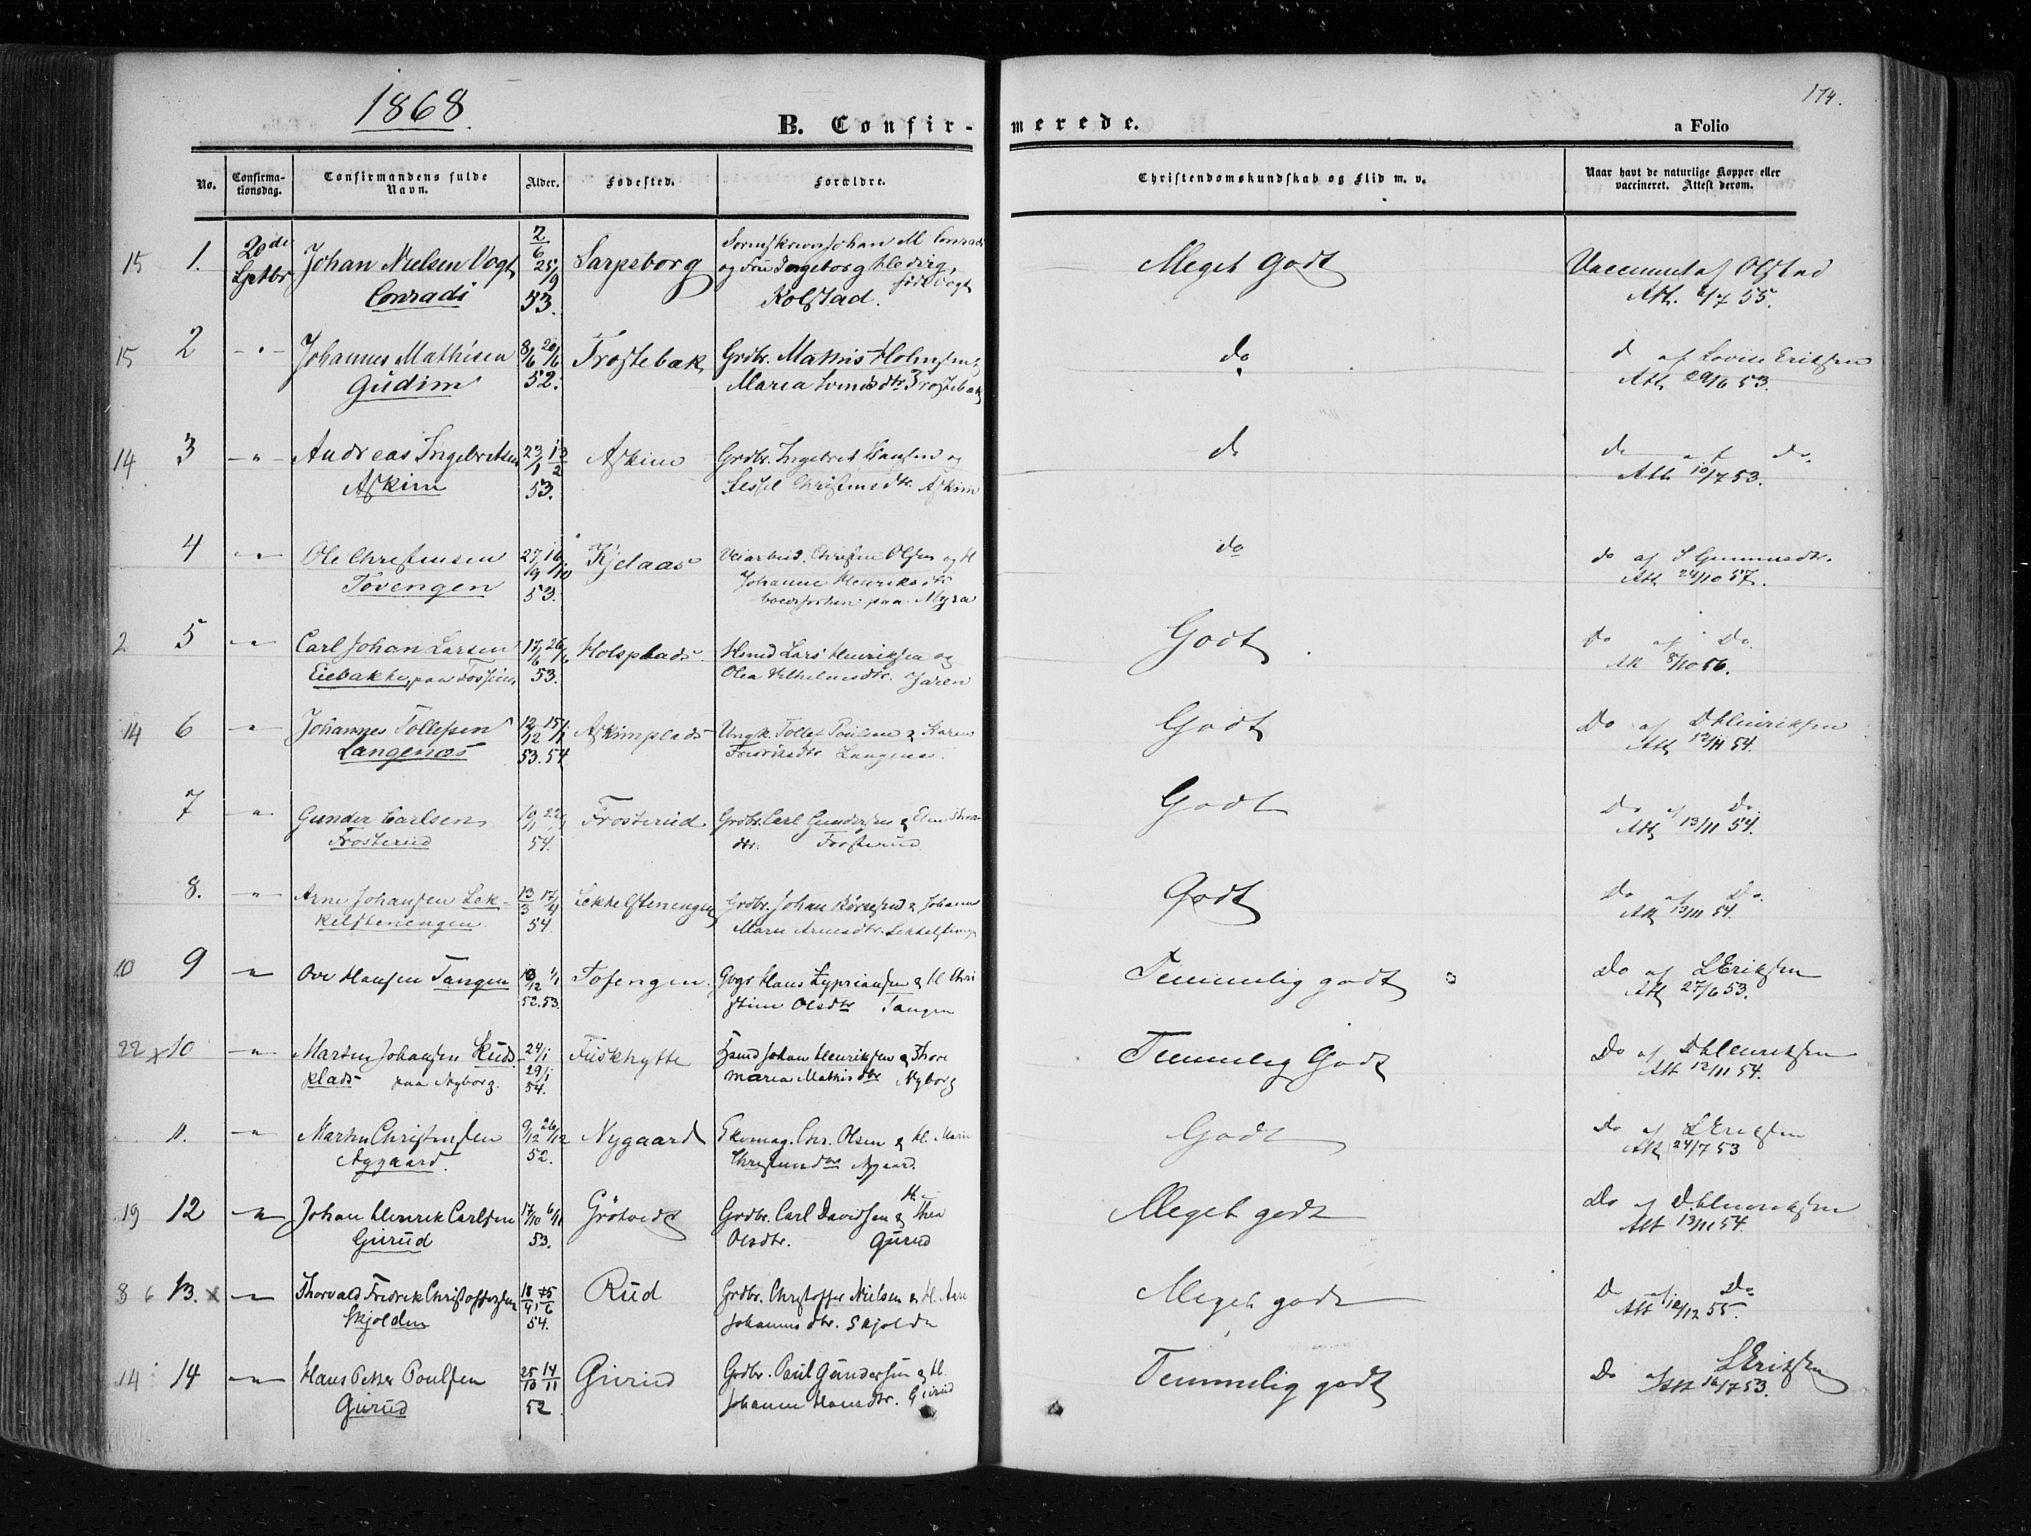 1868.
174.
B. Confirmerede.
a Folio
No.
Confirmationsdag.
Confirmandens fulde Navn.
Alder.
Fødested.
Forældre.
Christendomskundskab og Flid m. v.
Naar havt de naturlige Kopper eller vaccineret. Attest derom.
15 1. 20de Septbr Johan Nielsen Vogt 2/6 25/9 Sarpsborg Johan M Conradi Meget Godt Vaccineret af Olstad
Conradi 53. og Fru Ingeborg Hedvig, født Vogt Att. 6/7 55.
Kolstad.
15 2 - " - Johannes Mathisen 8/6 20/6 Frostebæk Grdbr. Mathis Holmsen & do d af Lovise Eriksen
Gudim 52. Maria Svendsdtr Frostebæk Att 29/6 53.
14 3 - " - Andreas Ingebretsen 23/1 13/2 Askim Grdbr. Ingebret Hansen og d do af do.
Askim 53. Christensdtr. Askim Att 10/7 53.
4 - " - Ole Christensen 27/9 16/10 Kjelaas Christen Olsen og H do do af S Gunnersdtr.
Tovengen 53. Johanne Henriksdtr Att 24/10 57.
paa Myra
2 5 - " - Carl Johan Larsen 17/6 26/6 Holsplads Hsmd Lars Henriksen og Godt Do af Do.
Eiebakke, paa Fossum 53. Olea Vilhelmsdtr. Jaren Att 8/10 56.
14 6 " Johannes Tollefsen 12/12 15/1 Askimplads Ungk. Tollef Poulsen & Karen Godt Do af D Henriksen
Langenæs 53. 54 Fredriksdtr Langenæs. Att 13/11 54.
7 " Gunder Carlsen 10/1 22/1 Frosterud Grdbr. Carl Gundersen & Godt Do af Do
Frosterud 54. dtr. Frosterud Att 13/11 54.
8. " Arne Johansen Lek- 13/3 17/4 Grdbr. Johan & Johanne Godt Do af Do.
kelstenengen 54. Marie Arnesdtr. Att 13/11 54.
10 9 " Ove Hansen Tangen Tofengen. Hans Zypriansen & H Chri Temmelig godt Do af LEriksen
52. 53. stine Olsdtr Tangen Att 27/6 53.
22 x 10 " Marten Johansen Ruds- 24/1 Fuskhytte Johan Henriksen & Thore Temmelig Godt Do af DHenriksen
plads paa Nyborg. 29/1 54. maria Mathisdtr Nyborg Att 12/11 54.
11. " Marten Christensen 9/12 26/12 Nygaard Skomag. Chr. Olsen & H. Marie Godt Do af LEriksen
Nygaard. 52. Nygaard. Att 24/7 53
19 12 " Johan Henrik Carlsen 17/10 6/11 Grøtvedt Grdbr. Carl Davidsen & H. Thea Meget godt Do af D.Henriksen
Gurud 53. Olsdtr. Gurud Att 13/11 54.
8 6 13. x " Thorvald Fredrik Christoffersen 18/4 Rud Grdbr. Christoffer Nielsen & H. Meget godt Do af Do
Skjolden 54. Johannesdtr. Skjolden Att 12/12 55.
14 14 " Hans Petter Poulsen 25/10 14/11 Gurud Grdbr. Paul Gundersen & H. Temmelig godt Do af LEriksen
Gurud 52 Johanne Hansdtr. Gurud Att 16/7 53.